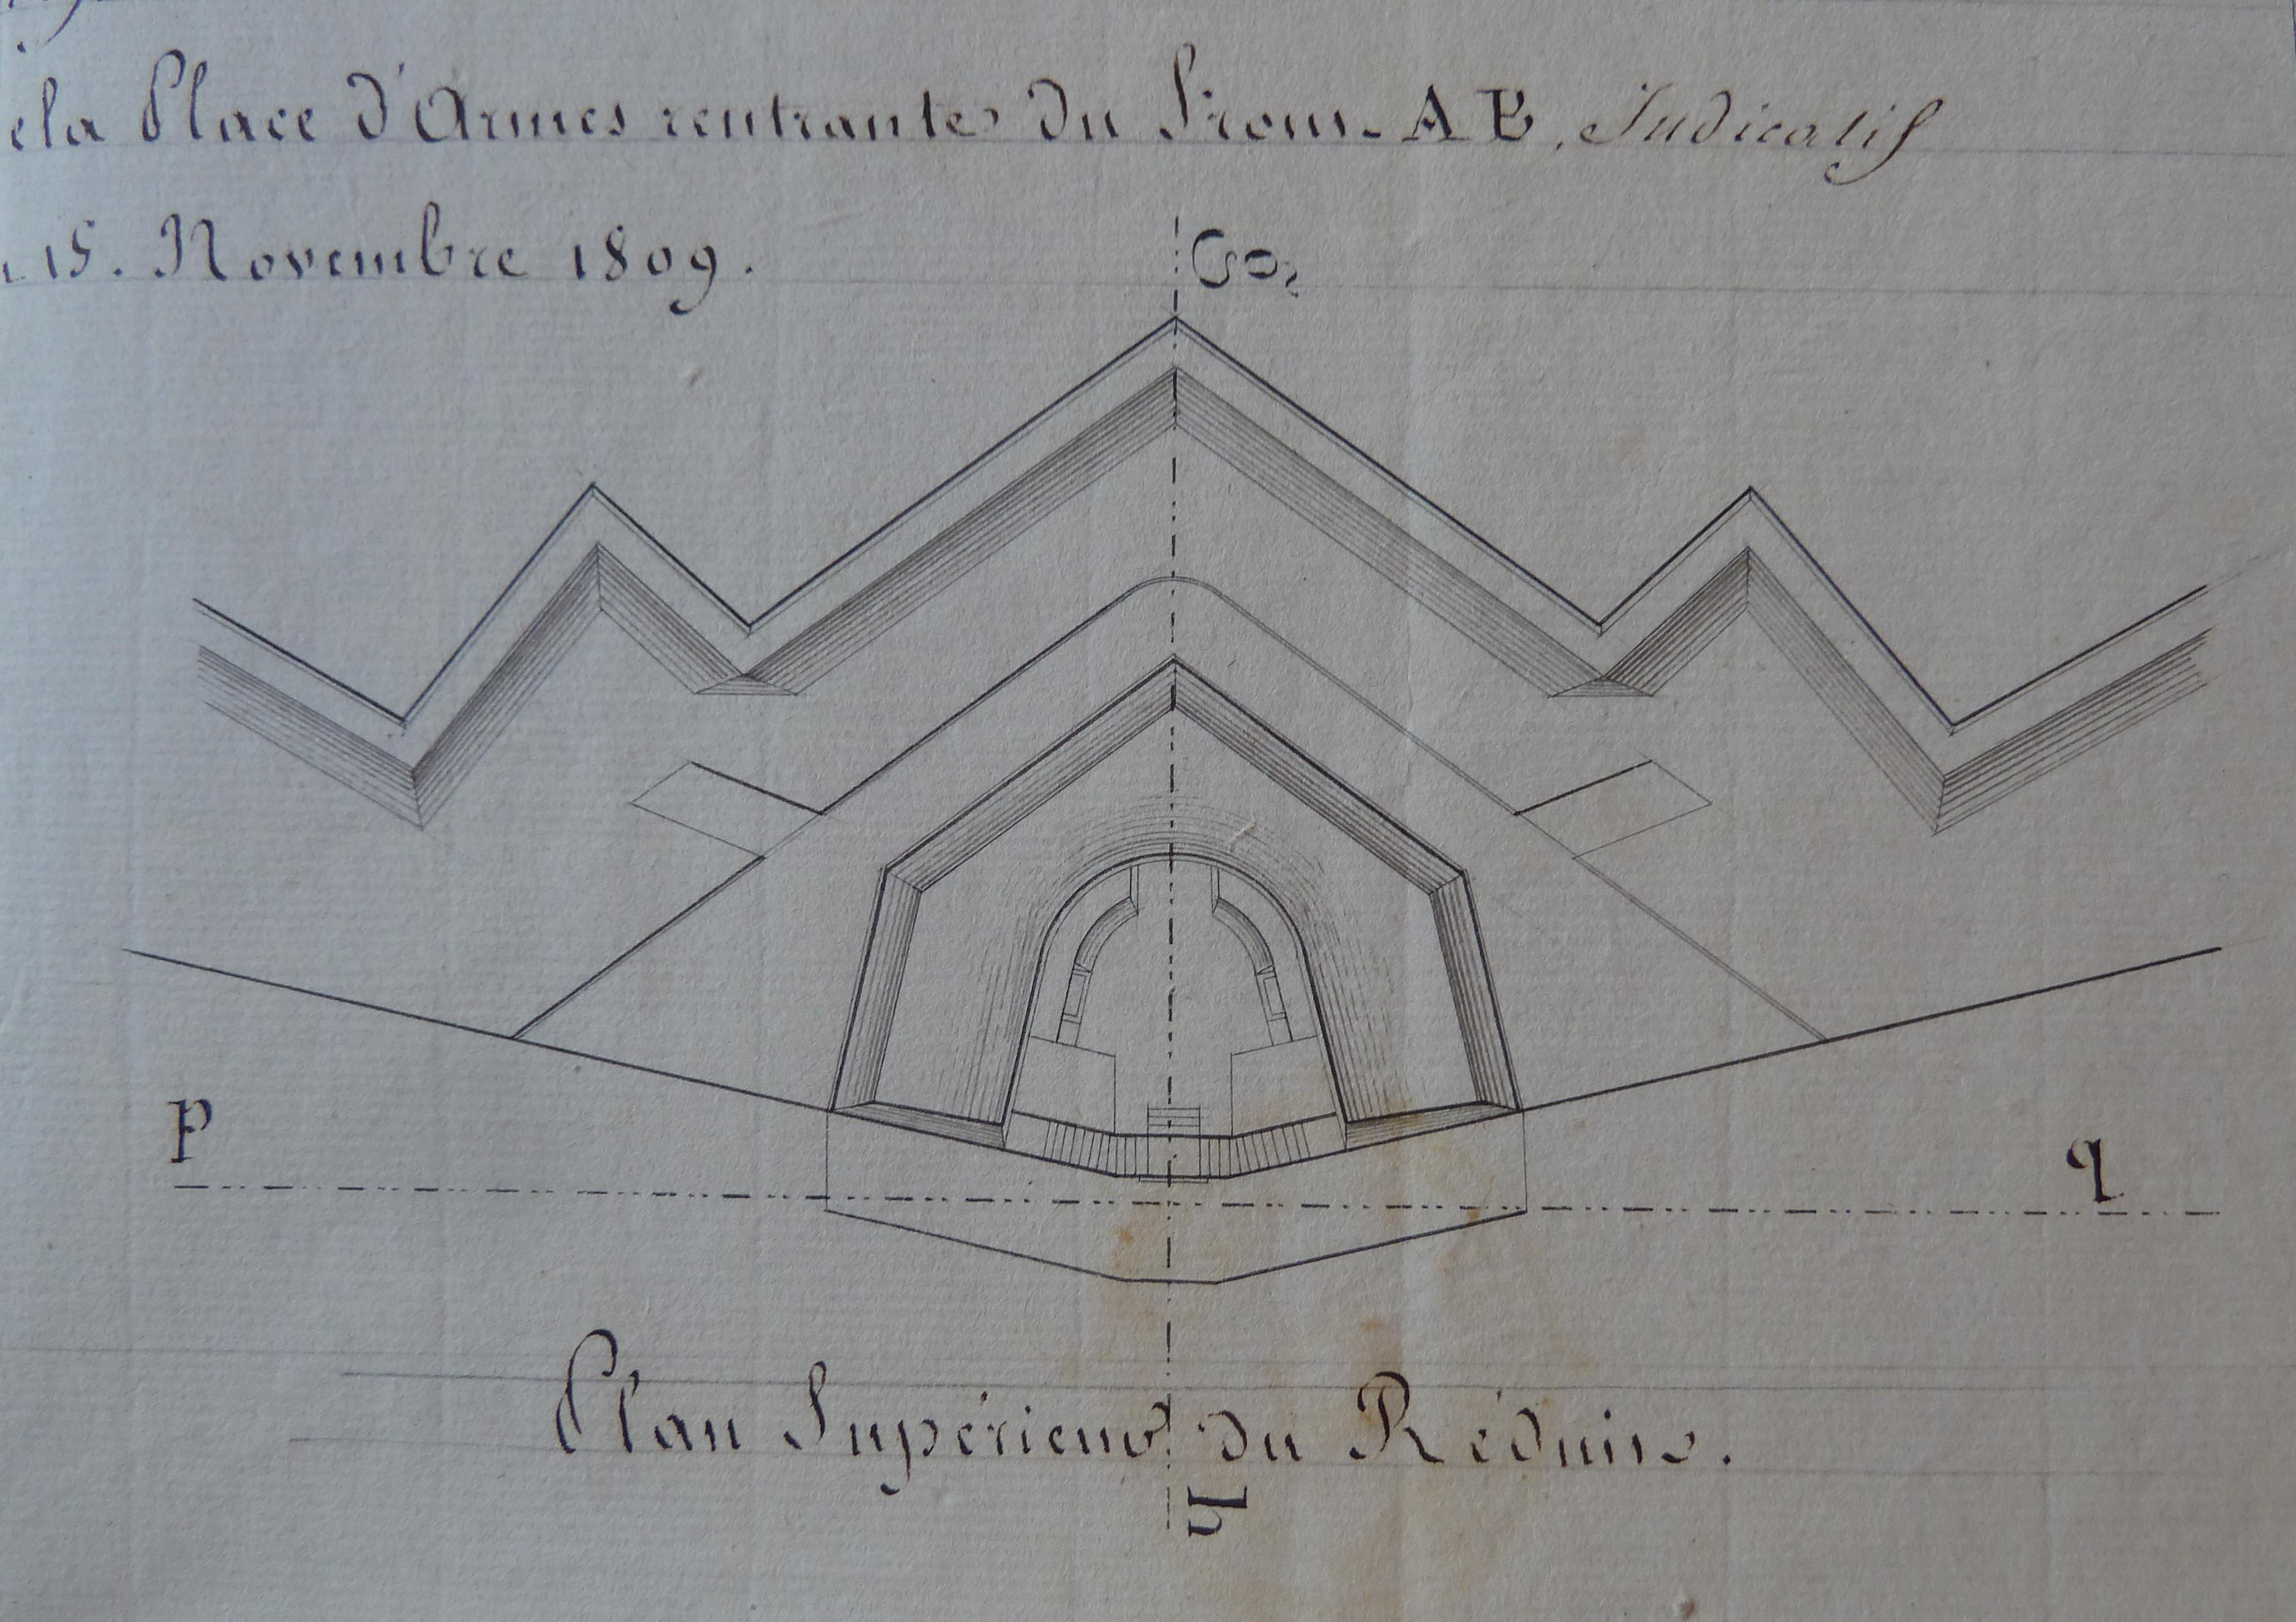 ela Place d'Armes rentrante du Front AB, Indicatif
15. Novembre 1809.
p
q
Plan Supérieur du Réduit.